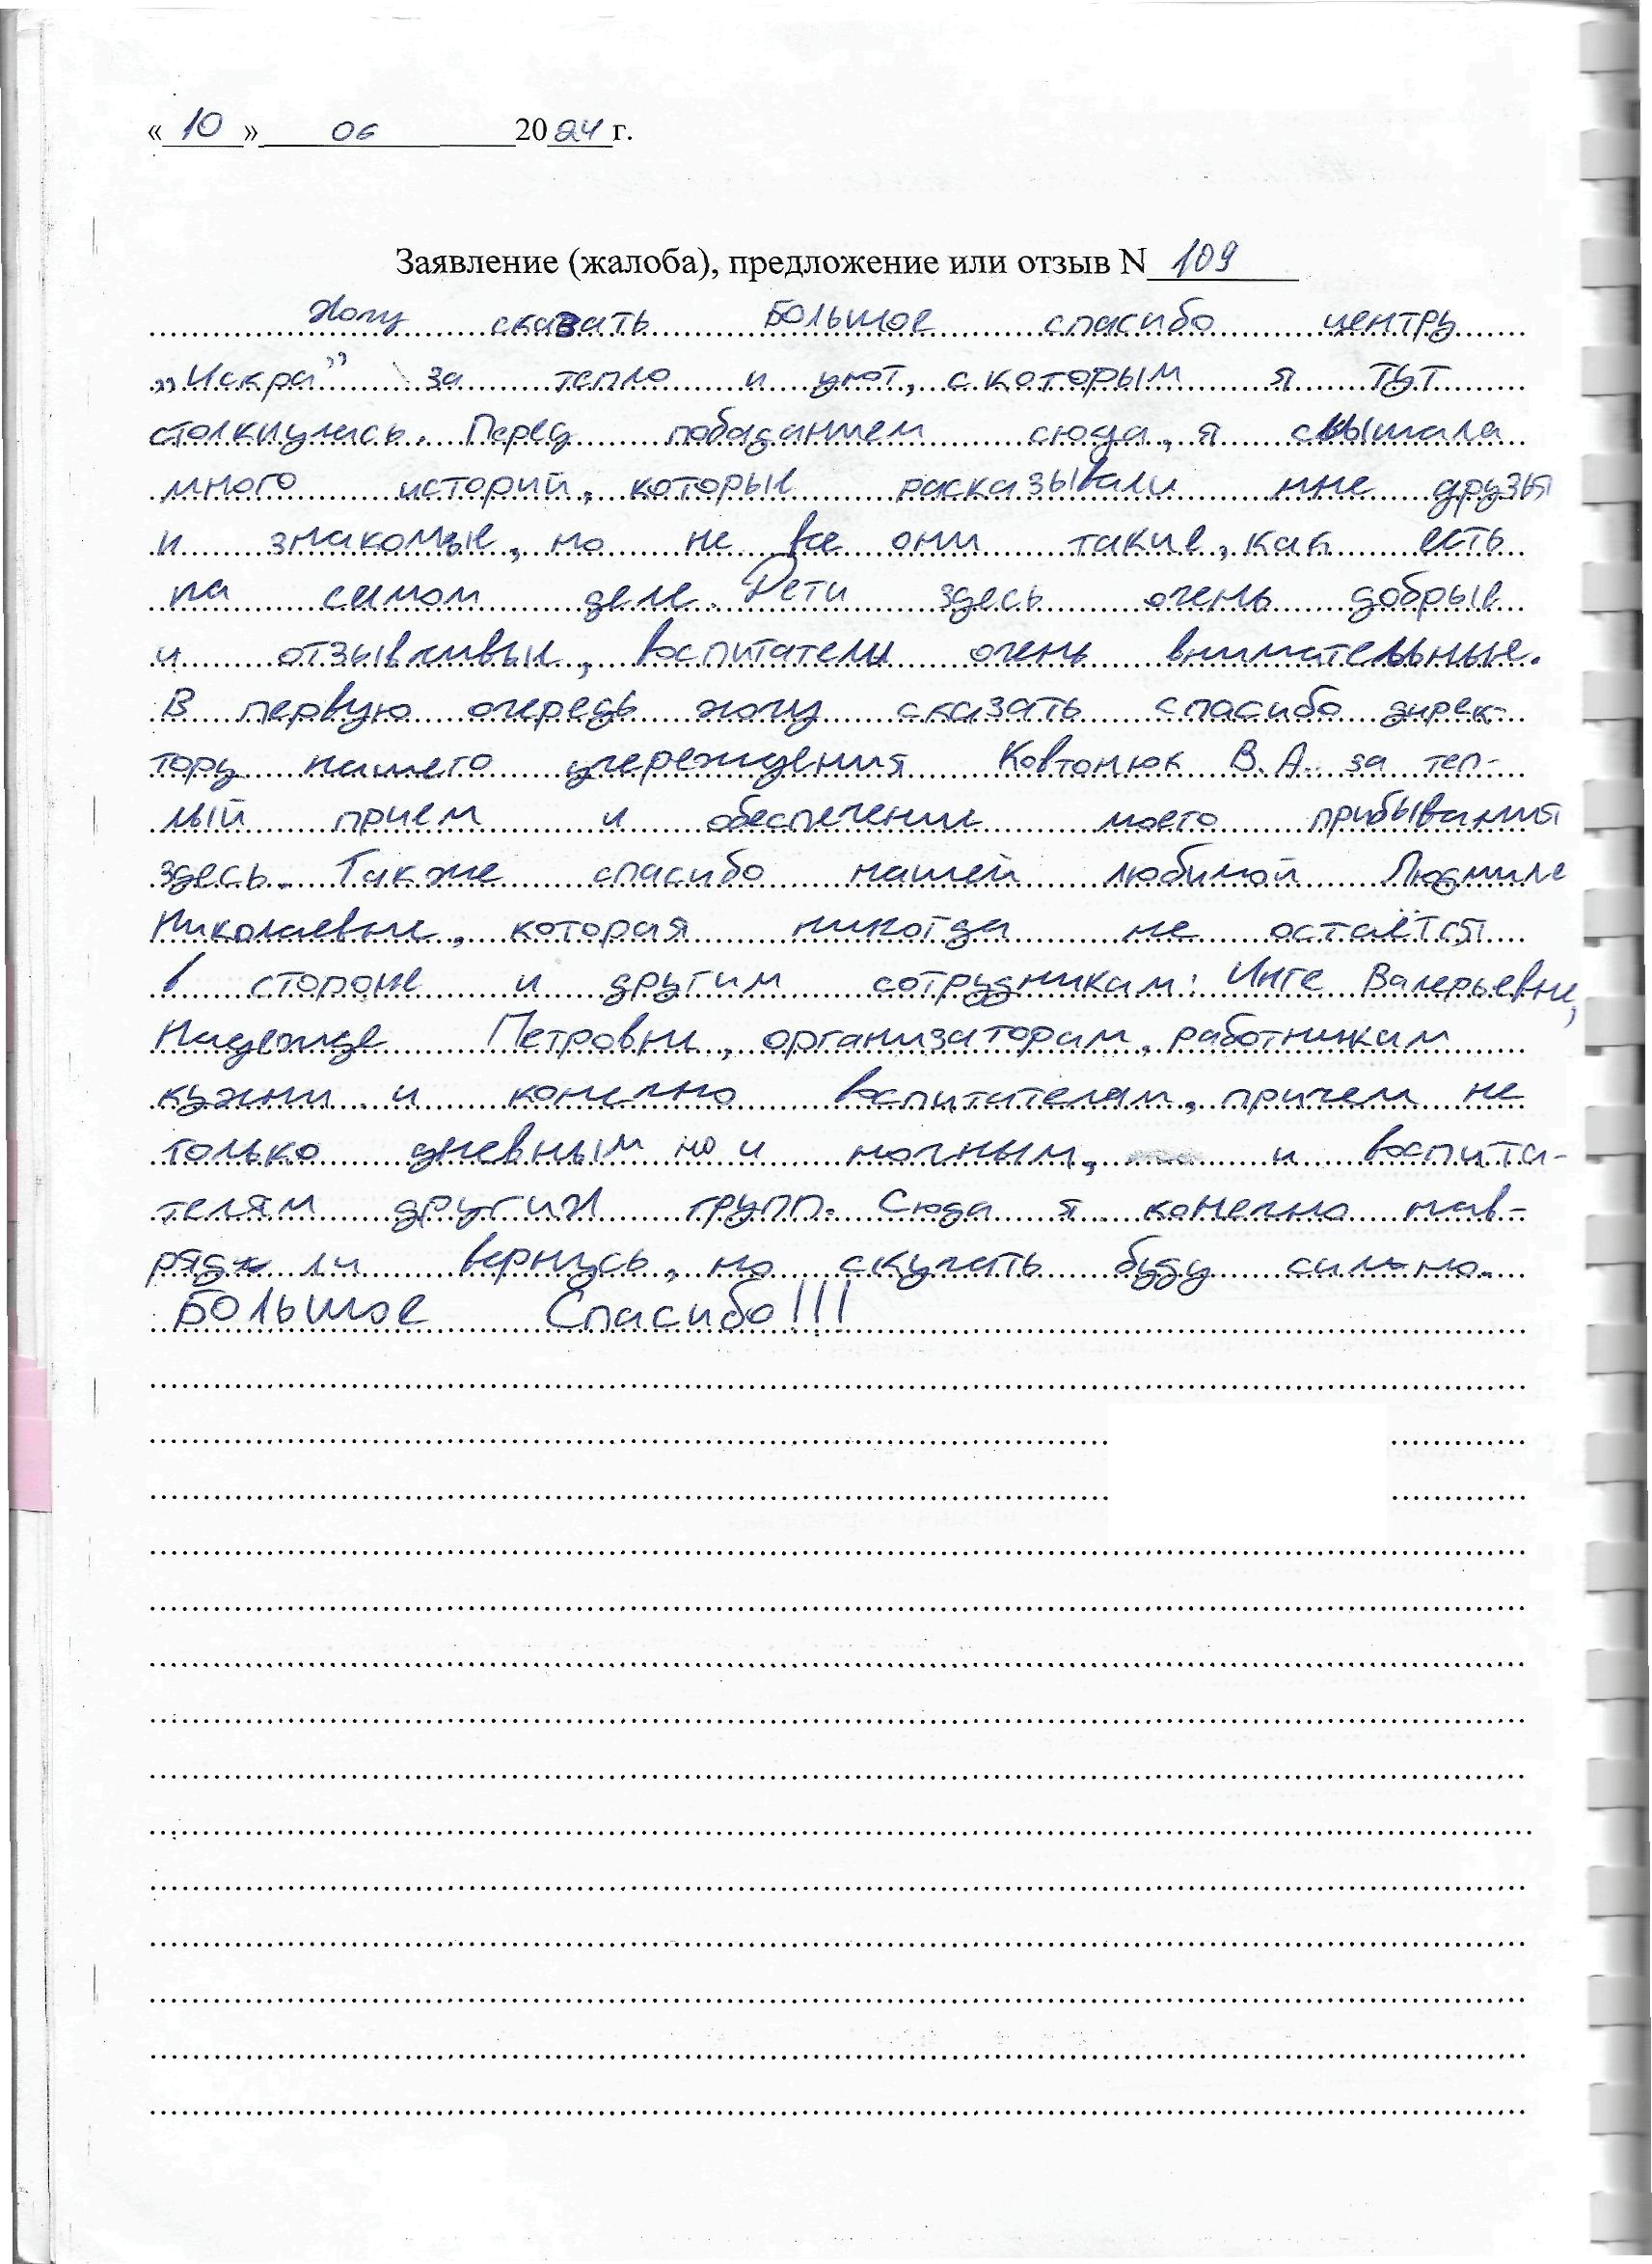 «10» 06 2024 г.
Заявление (жалоба), предложение или отзыв N 109
Хочу сказать Большое спасибо центру
„Искра” за тепло и уют, с которым я тут
столкнулась. Перед попаданием сюда, я слышала
много историй, которые расказывали мне друзья
и знакомые, но не все они такие, как есть
на самом деле. Дети здесь очень добрые
и отзывчивые, воспитатели очень внимательные.
В первую очередь хочу сказать спасибо дирек-
тору нашего учереждения Ковтонюк В.А. за теп-
лый прием и обеспечение моего прибывания
здесь. Также спасибо нашей любимой Людмиле
Николаевне, которая никогда не остаётся
в стороне и другим сотрудникам: Инге Валерьевне,
Надежде Петровне, организаторам, работникам
кухни и конечно воспитателям, причем не
только дневным но и ночным, и воспита-
телям других групп. Сюда я конечно нав-
ряд ли вернусь, но скучать буду сильно.
Большое Спасибо!!!